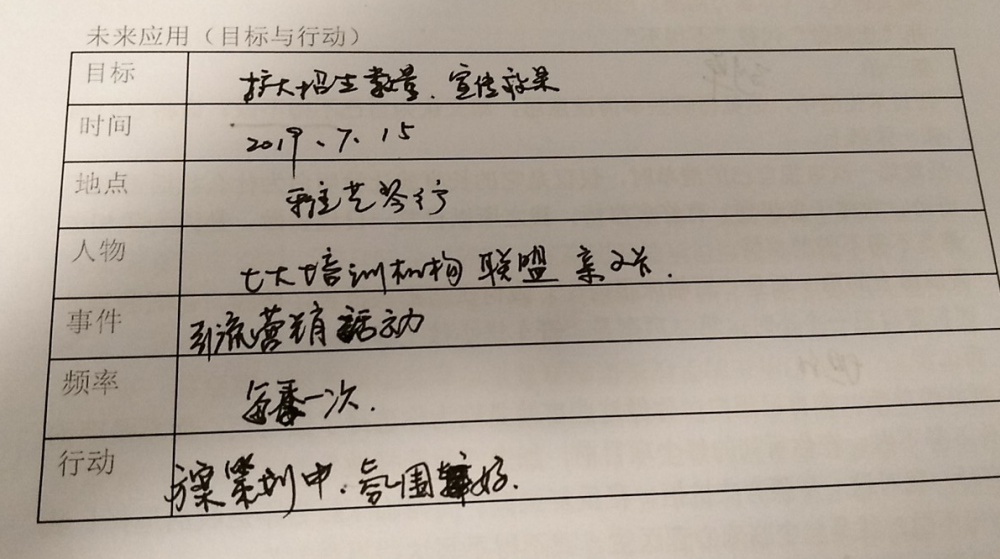 未来应用（目标与行动）
目标 扩大招生数量、宣传效果
时间 2019、7、15
地点 雅艺琴行
人物 七大培训机构联盟
事件 引流营销活动
频率 每季一次.
行动 方案策划中、氛围好.